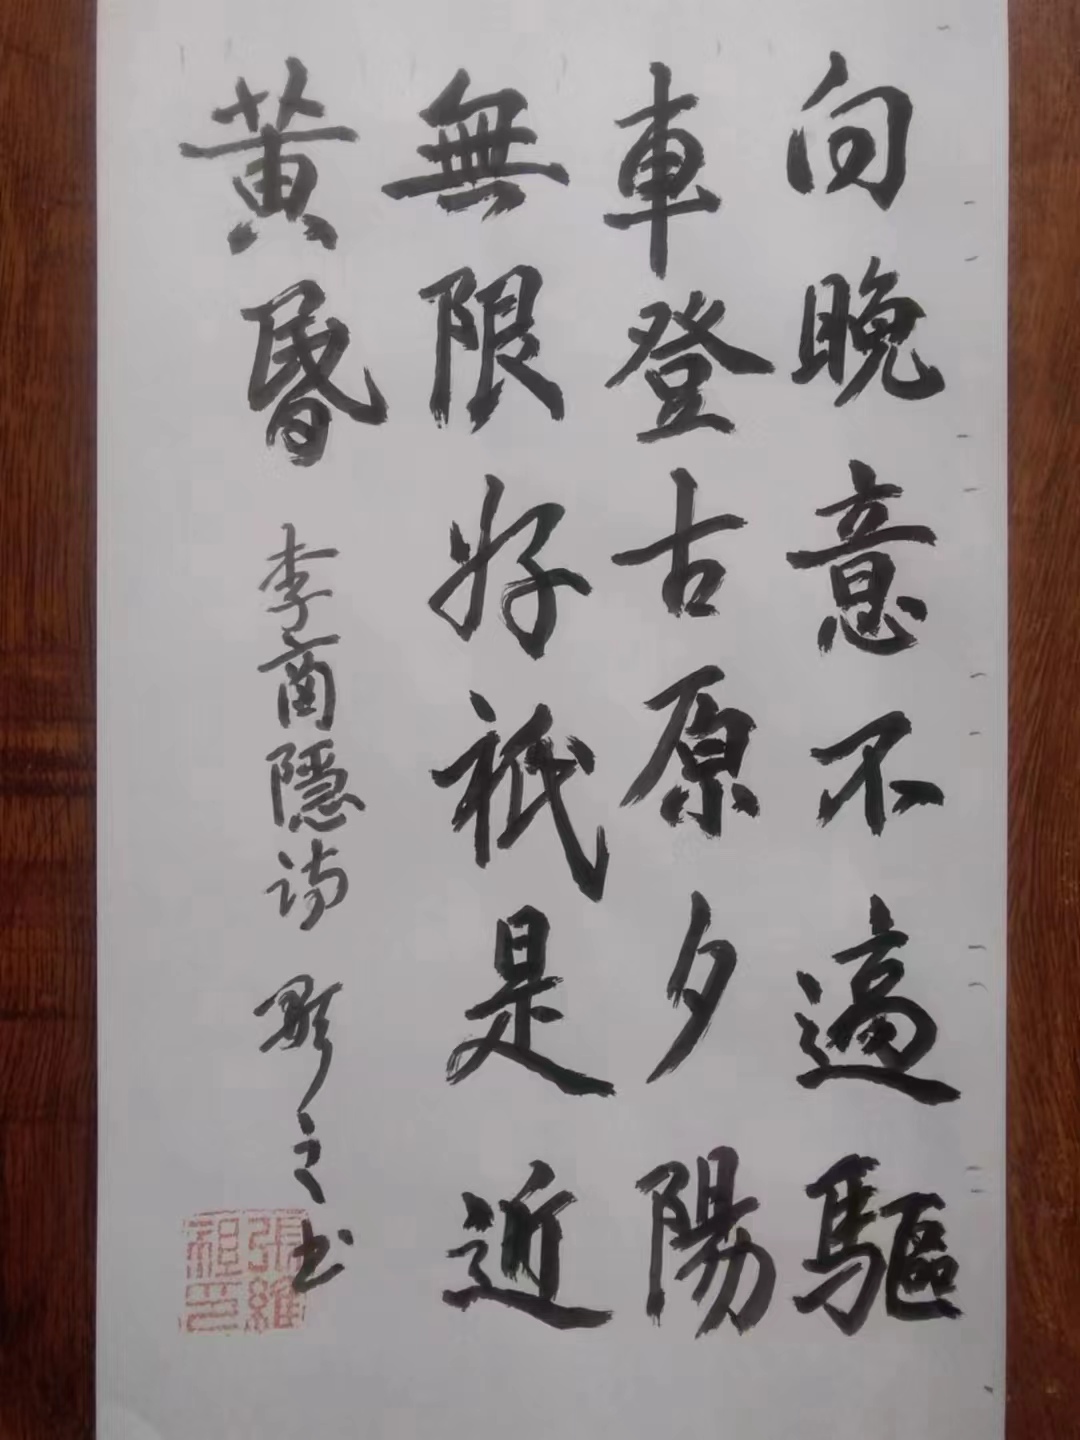 向晚意不適驅
車登古原夕陽
無限好祇是近
黄昬 李商隱詩 之书
張維
祖印